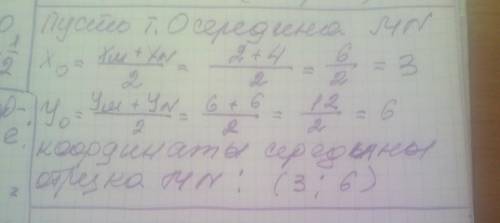 Пусть т. О середина MN
x₀ = (xм + xN)/2 = (2+4)/2 = 6/2 = 3
y₀ = (yм + yN)/2 = (6+6)/2 = 12/2 = 6
координаты середины
отрезка MN: (3; 6)